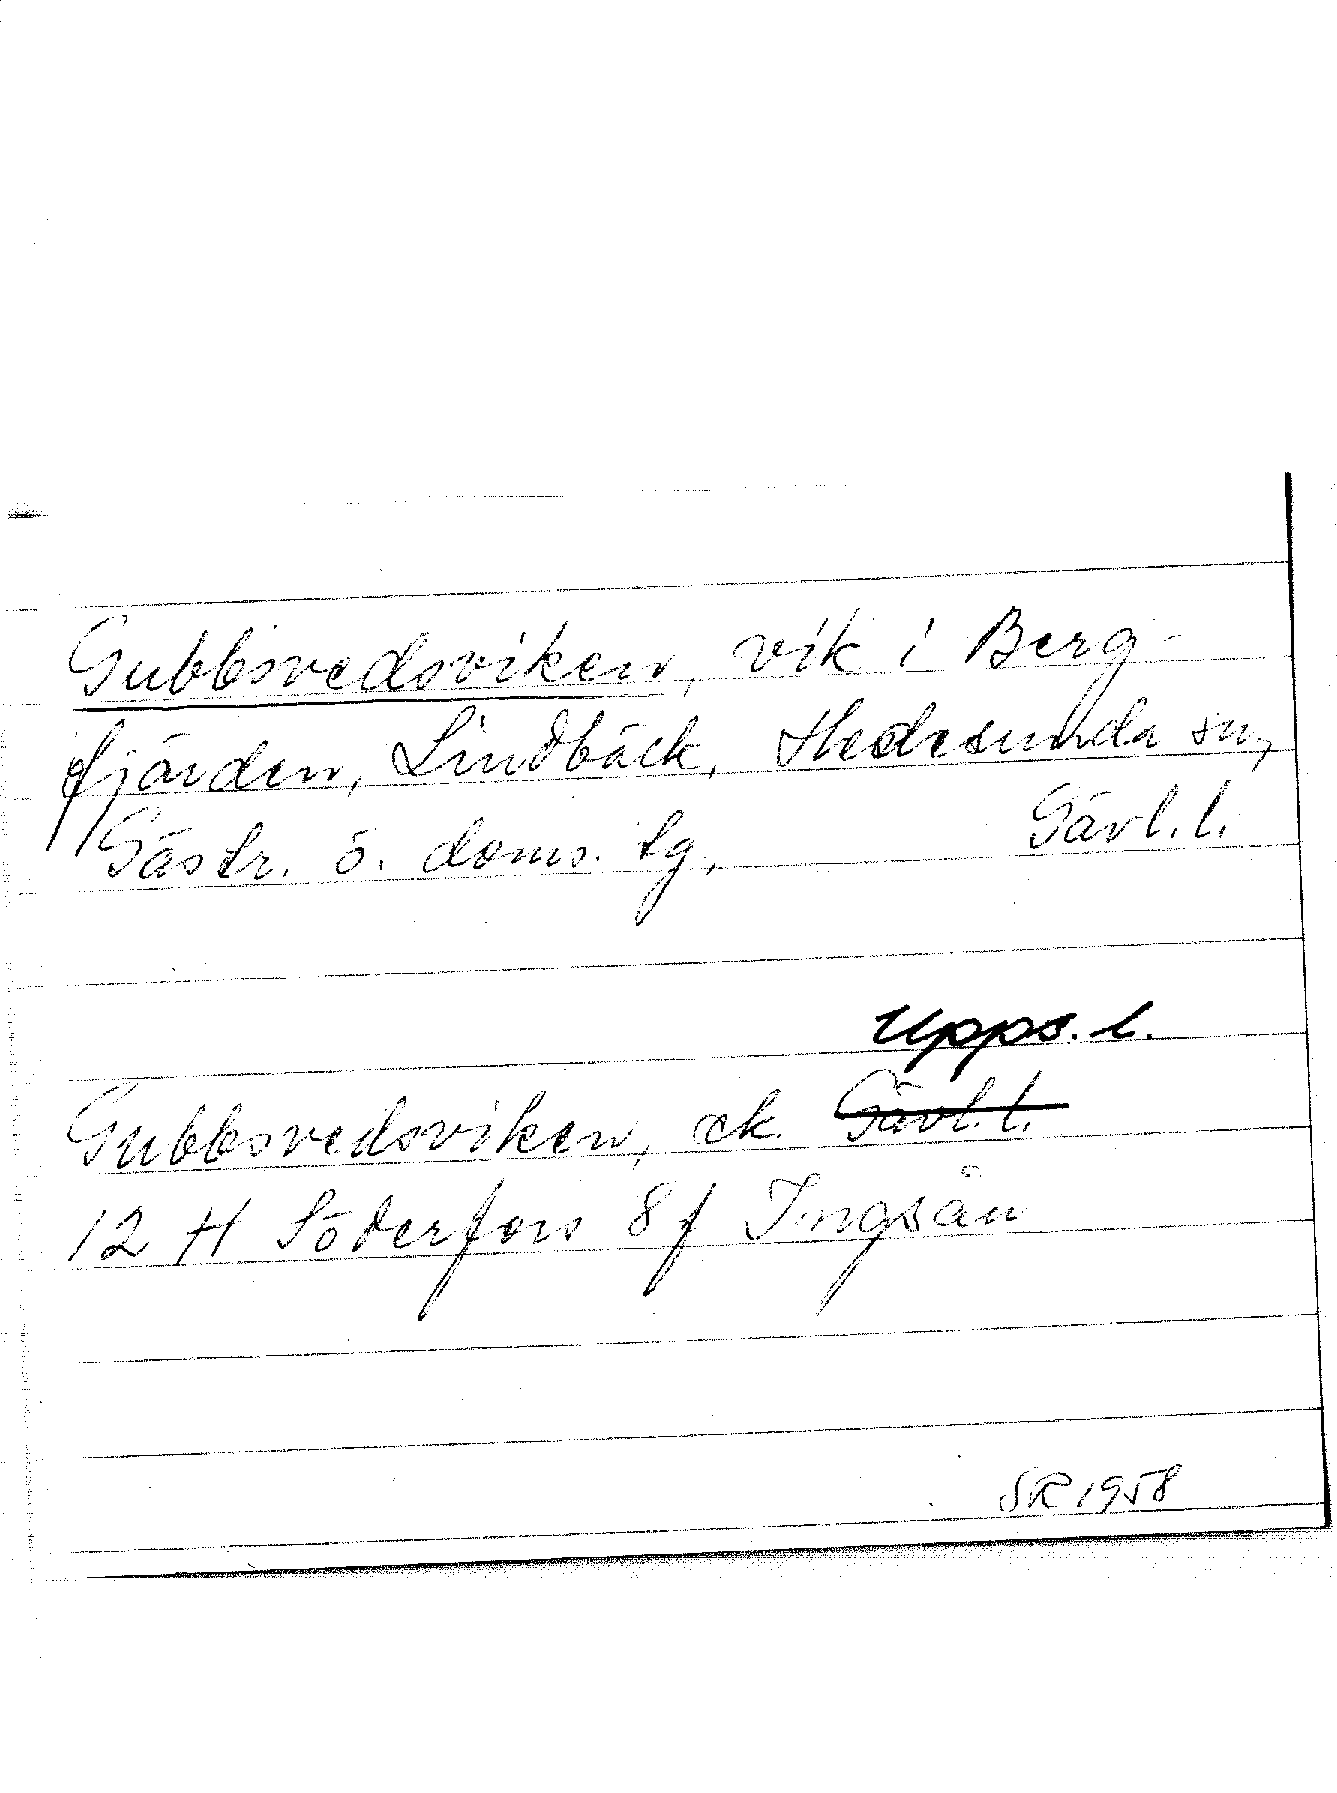 Gubbsvedsviken, vik i Berg-
fjärden, Lindbäck, Hedesunda sn,
Gästr. ö. doms. tg, Gävl. l.
Upps. l.
Gubbsvedsviken, ek. Gävl. l.
12 H Söderfors 8 f Ingsån
SR 1958